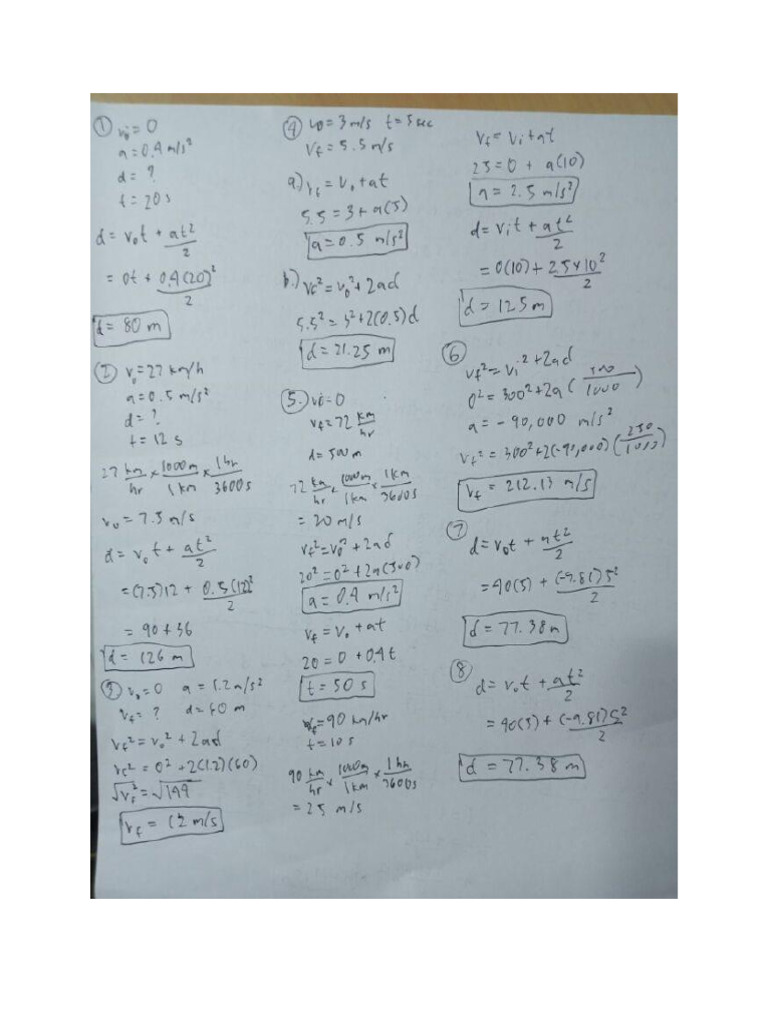 ① v₀ = 0
a = 0.4 m/s²
d = ?
t = 20 s
d = v₀t + at²/2
= 0t + 0.4(20)²/2
d = 80 m
② v₀ = 27 km/h
a = 0.5 m/s²
d = ?
t = 12 s
27 km/hr × 1000m/1km × 1hr/3600s
v₀ = 7.5 m/s
d = v₀t + at²/2
= (7.5)12 + 0.5(12)²/2
= 90 + 36
d = 126 m
③ v₀ = 0 a = 1.2 m/s²
v_f = ? d = 60 m
v_f² = v₀² + 2ad
v_f² = 0² + 2(12)(60)
√v_f² = √144
v_f = 12 m/s
④ v₀ = 3 m/s t = 5 sec
v_f = 5.5 m/s
a.) v_f = v₀ + at
5.5 = 3 + a(5)
a = 0.5 m/s²
b.) v_f² = v₀² + 2ad
5.5² = 3² + 2(0.5)d
d = 21.25 m
⑤. vi = 0
v_f = 72 km/hr
d = 500m
72 km/hr × 1000m/1km × 1km/3600s
= 20 m/s
v_f² = v₀² + 2ad
20² = 0² + 2a(500)
a = 0.4 m/s²
v_f = v₀ + at
20 = 0 + 0.4t
t = 50 s
v_f = 90 km/hr
t = 10 s
90 km/hr × 1000m/1km × 1hr/3600s
= 25 m/s
v_f = vi + at
25 = 0 + a(10)
a = 2.5 m/s²
d = vit + at²/2
= 0(10) + 2.5×10²/2
d = 125 m
⑥
v_f² = vi² + 2ad
0² = 300² + 2a(500/1000)
a = -90,000 m/s²
v_f² = 300² + 2(-90,000)(250/1000)
v_f = 212.13 m/s
⑦
d = v₀t + at²/2
= 40(5) + (-9.81)5²/2
d = 77.38 m
⑧
d = v₀t + at²/2
= 40(5) + (-9.81)5²/2
d = 77.38 m